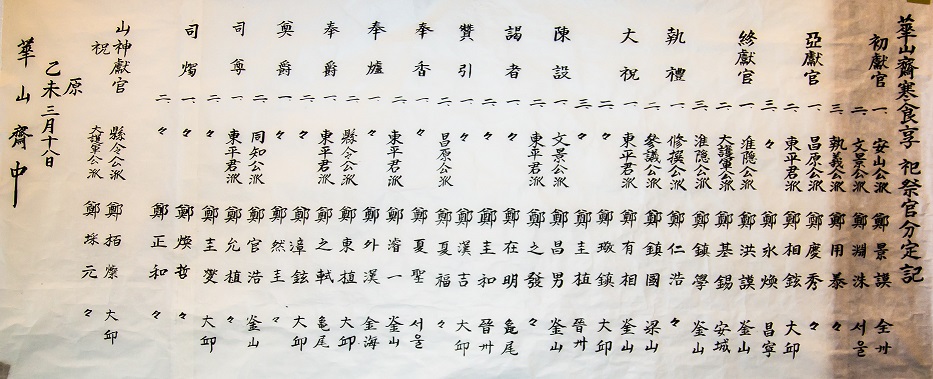 華山齋寒食享 祀祭官分定記
初獻官 一 安山公派 鄭景謨 全州
二 文景公派 鄭淵洙 서울
三 執義公派 鄭用泰 〃
亞獻官 一 昌原公派 鄭慶秀 〃
二 東平君派 鄭相鉉 大邱
三 〃 鄭永煥 昌寧
終獻官 一 淮隱公派 鄭洪謨 釜山
二 大護軍公派 鄭基錫 安城
三 淮隱公派 鄭鎭學 釜山
執禮 一 修撰公派 鄭仁浩 〃
二 參議公派 鄭鎭國 梁山
大祝 一 東平君派 鄭有相 釜山
二 〃 鄭琢鎮 大邱
三 〃 鄭圭植 晉州
陳設 一 文景公派 鄭昌男 釜山
二 東平君派 鄭之發 〃
謁者 一 〃 鄭在明 龜尾
二 〃 鄭圭和 晉州
贊引 一 〃 鄭漢吉 大邱
二 昌原公派 鄭夏福 〃
奉香 一 〃 鄭夏聖 서울
二 東平君派 鄭濬一 釜山
奉爐 一 〃 鄭外漢 金海
二 縣令公派 鄭東植 大邱
奉爵 一 東平君派 鄭之軾 龜尾
二 〃 鄭漳鉉 大邱
奠爵 一 〃 鄭然圭 〃
二 同知公派 鄭官浩 釜山
司尊 一 東平君派 鄭允植 〃
二 〃 鄭圭燮 大邱
司燭 一 〃 鄭煥哲 〃
二 〃 鄭正和 〃
山神獻官 縣令公派 鄭栢燮 大邱
祝 大護軍公派 鄭埰元 〃
原
乙未三月十八日
華山齋中